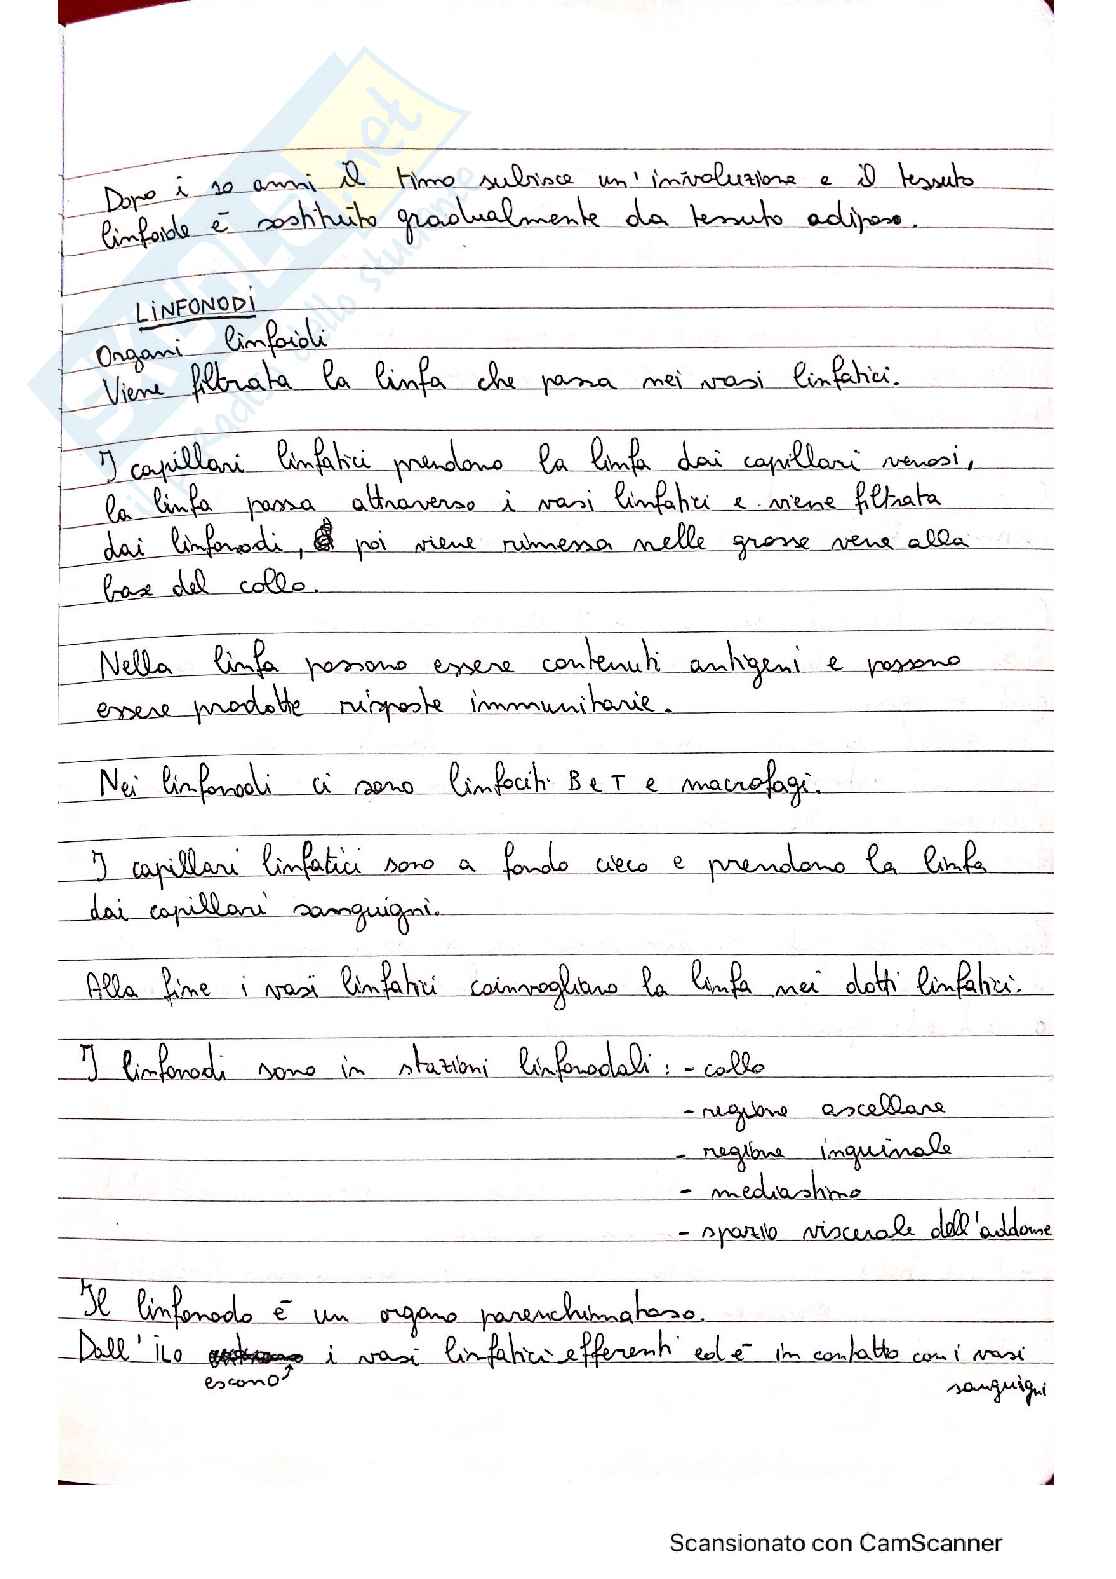 Dopo i 10 anni il timo subisce un'inivoluzione e il tessuto
linfoide è sostituito gradualmente da tessuto adiposo.
LINFONODI
Organi linfoidi
Viene filtrata la linfa che passa nei vasi linfatici.
I capillari linfatici prendono la linfa dai capillari venosi,
la linfa passa attraverso i vasi linfatici e viene filtrata
dai linfonodi, poi viene rimessa nelle grosse vene alla
base del collo.
Nella linfa possono essere contenuti antigeni e possono
essere prodotte risposte immunitarie.
Nei linfonodi ci sono linfociti B e T e macrofagi.
I capillari linfatici sono a fondo cieco e prendono la linfa
dai capillari sanguigni.
Alla fine i vasi linfatici coinvogliano la linfa nei dotti linfatici.
I linfonodi sono in stazioni linfonodali: - collo
- regione ascellare
- regione inguinale
- mediastino
- spazio viscerale dell'addome
Il linfonodo è un organo parenchimatoso.
Dall'ilo escono i vasi linfatici efferenti ed è in contatto con i vasi
sanguigni
Scansionato con CamScanner